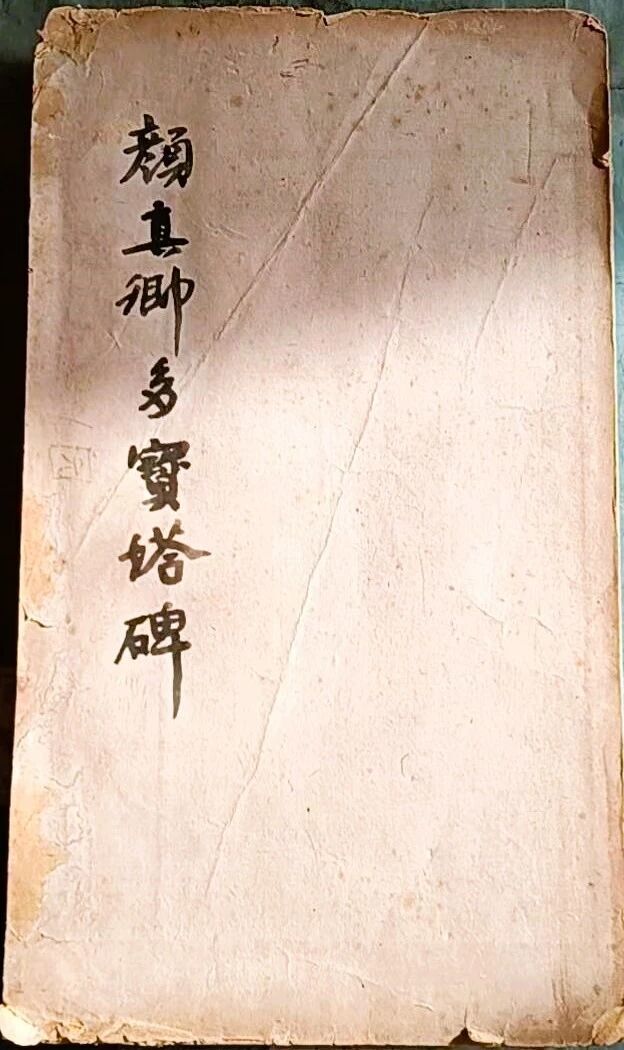 顏真卿多寶塔碑